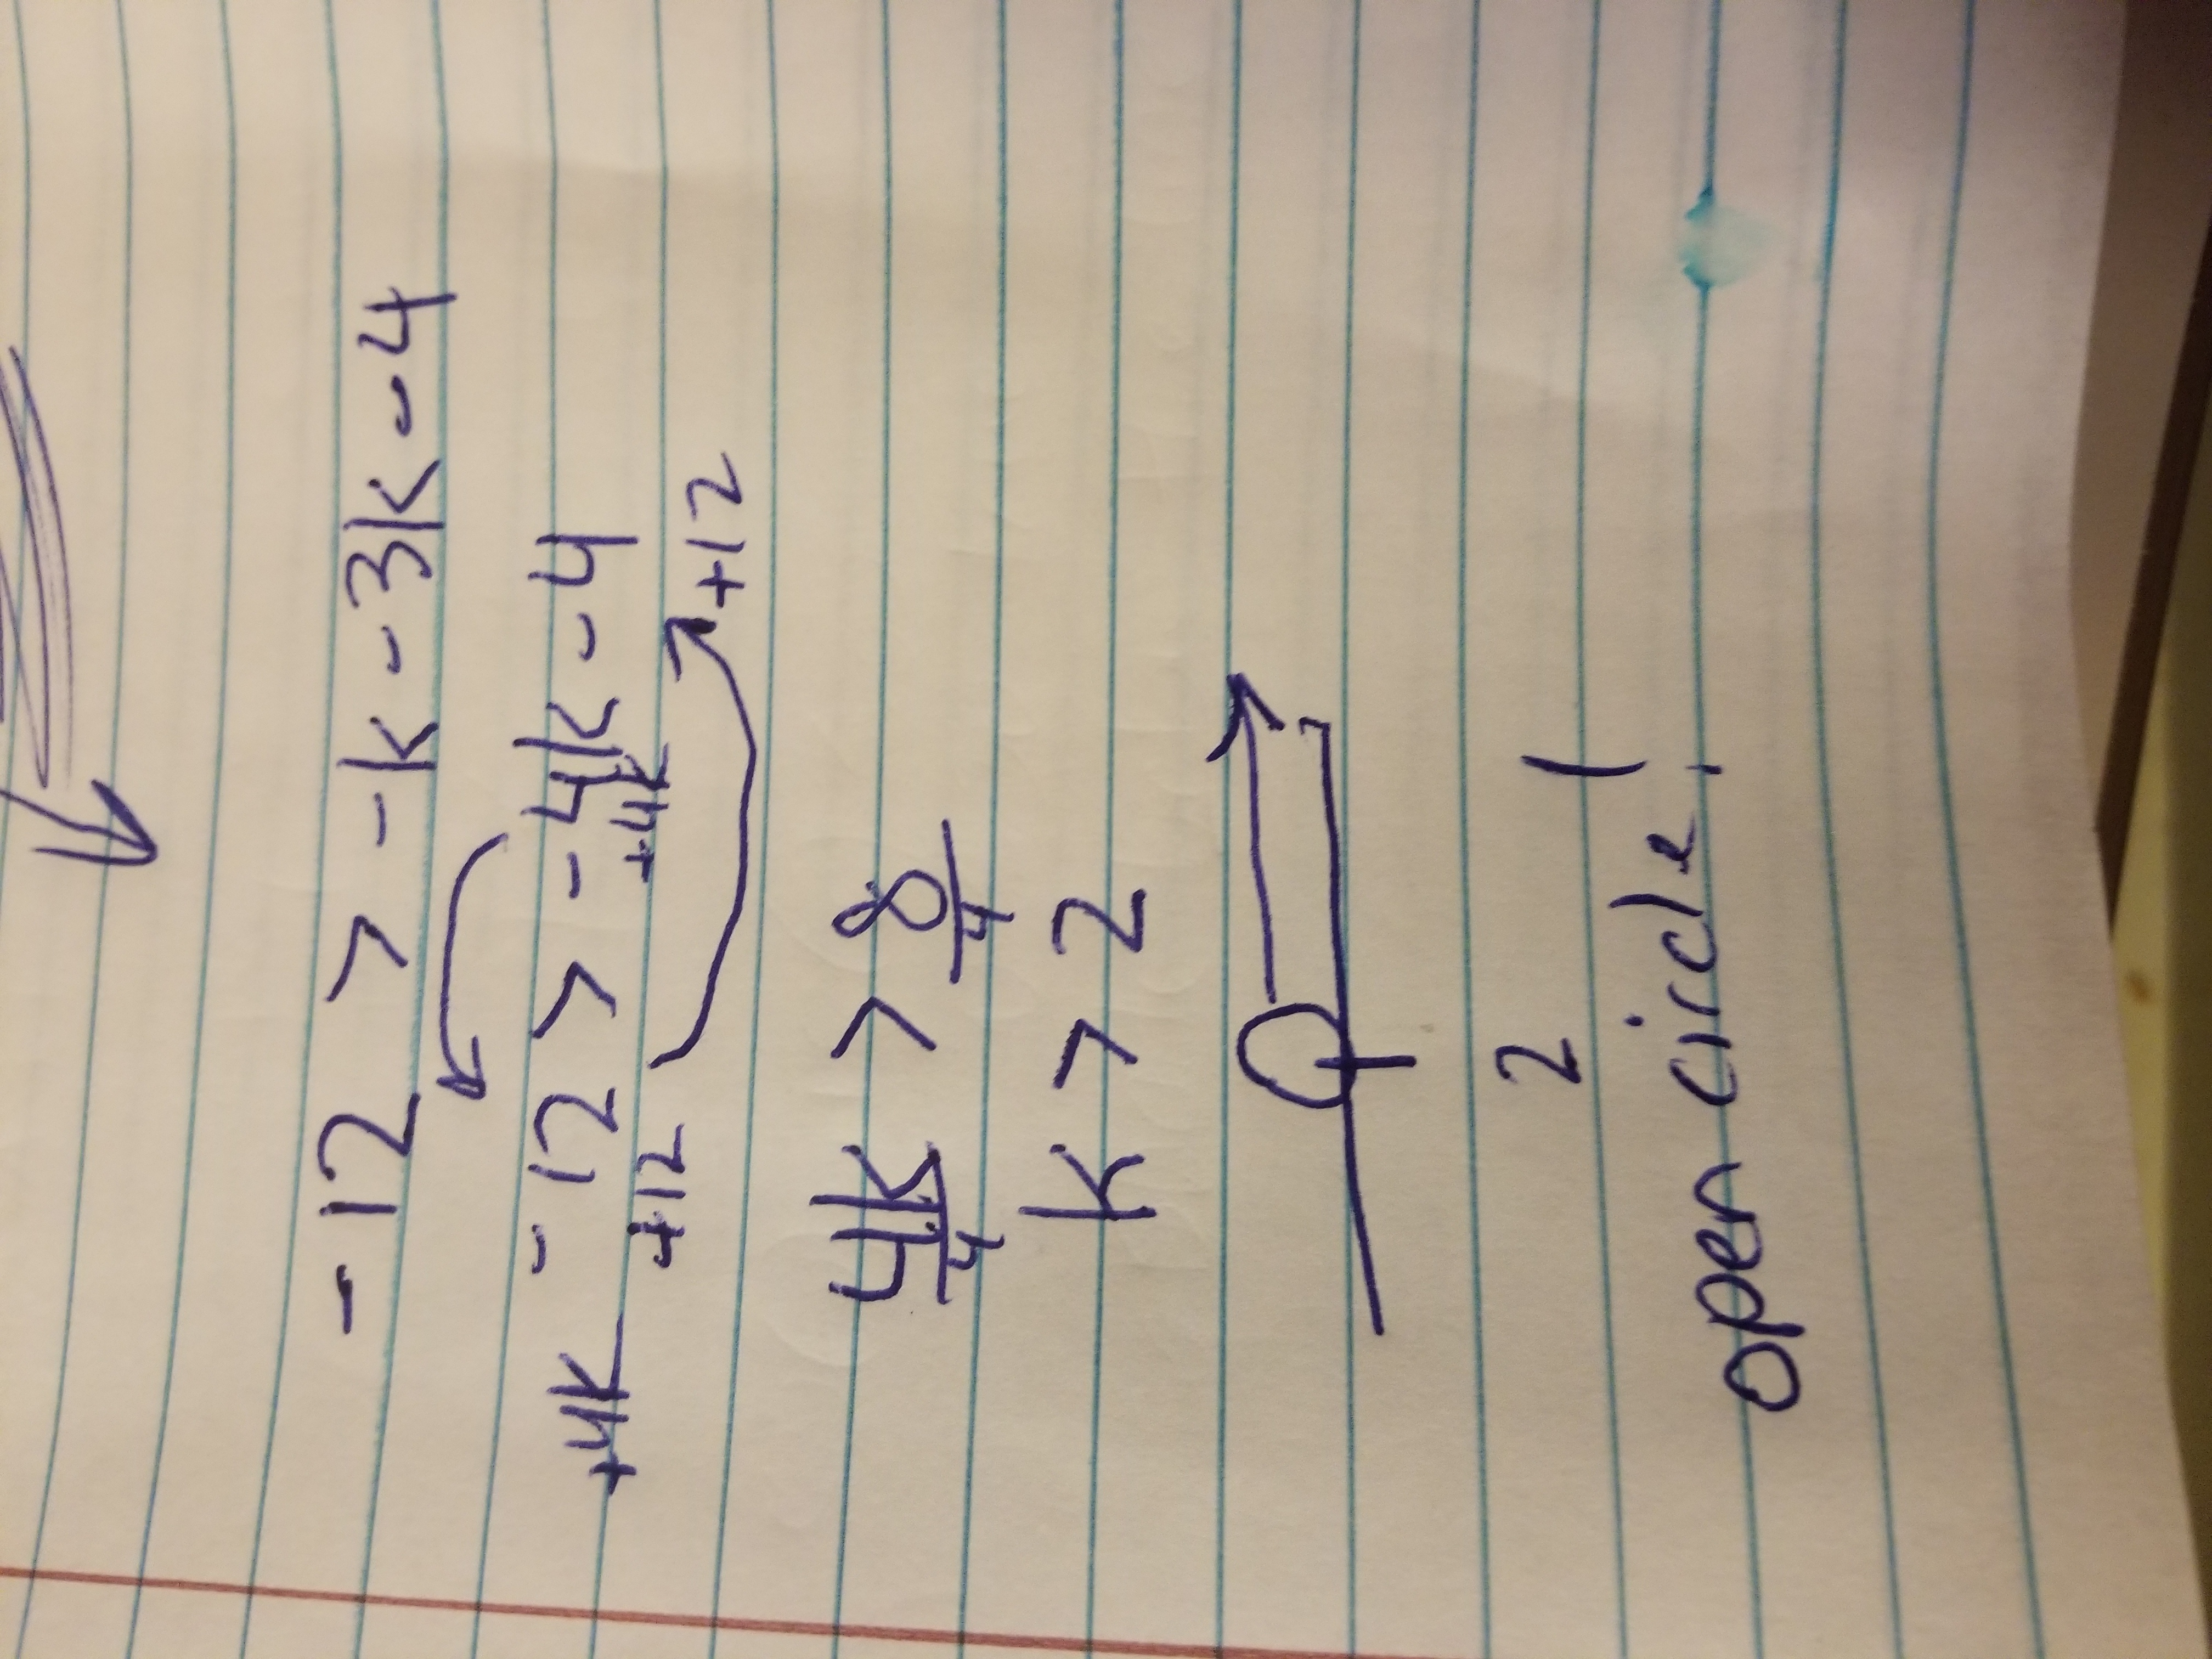 -12 > -k - 3k - 4
+4k -12 > -4k - 4
+12 +4k +12
4k/4 > 8/4
k > 2
2
open circle!